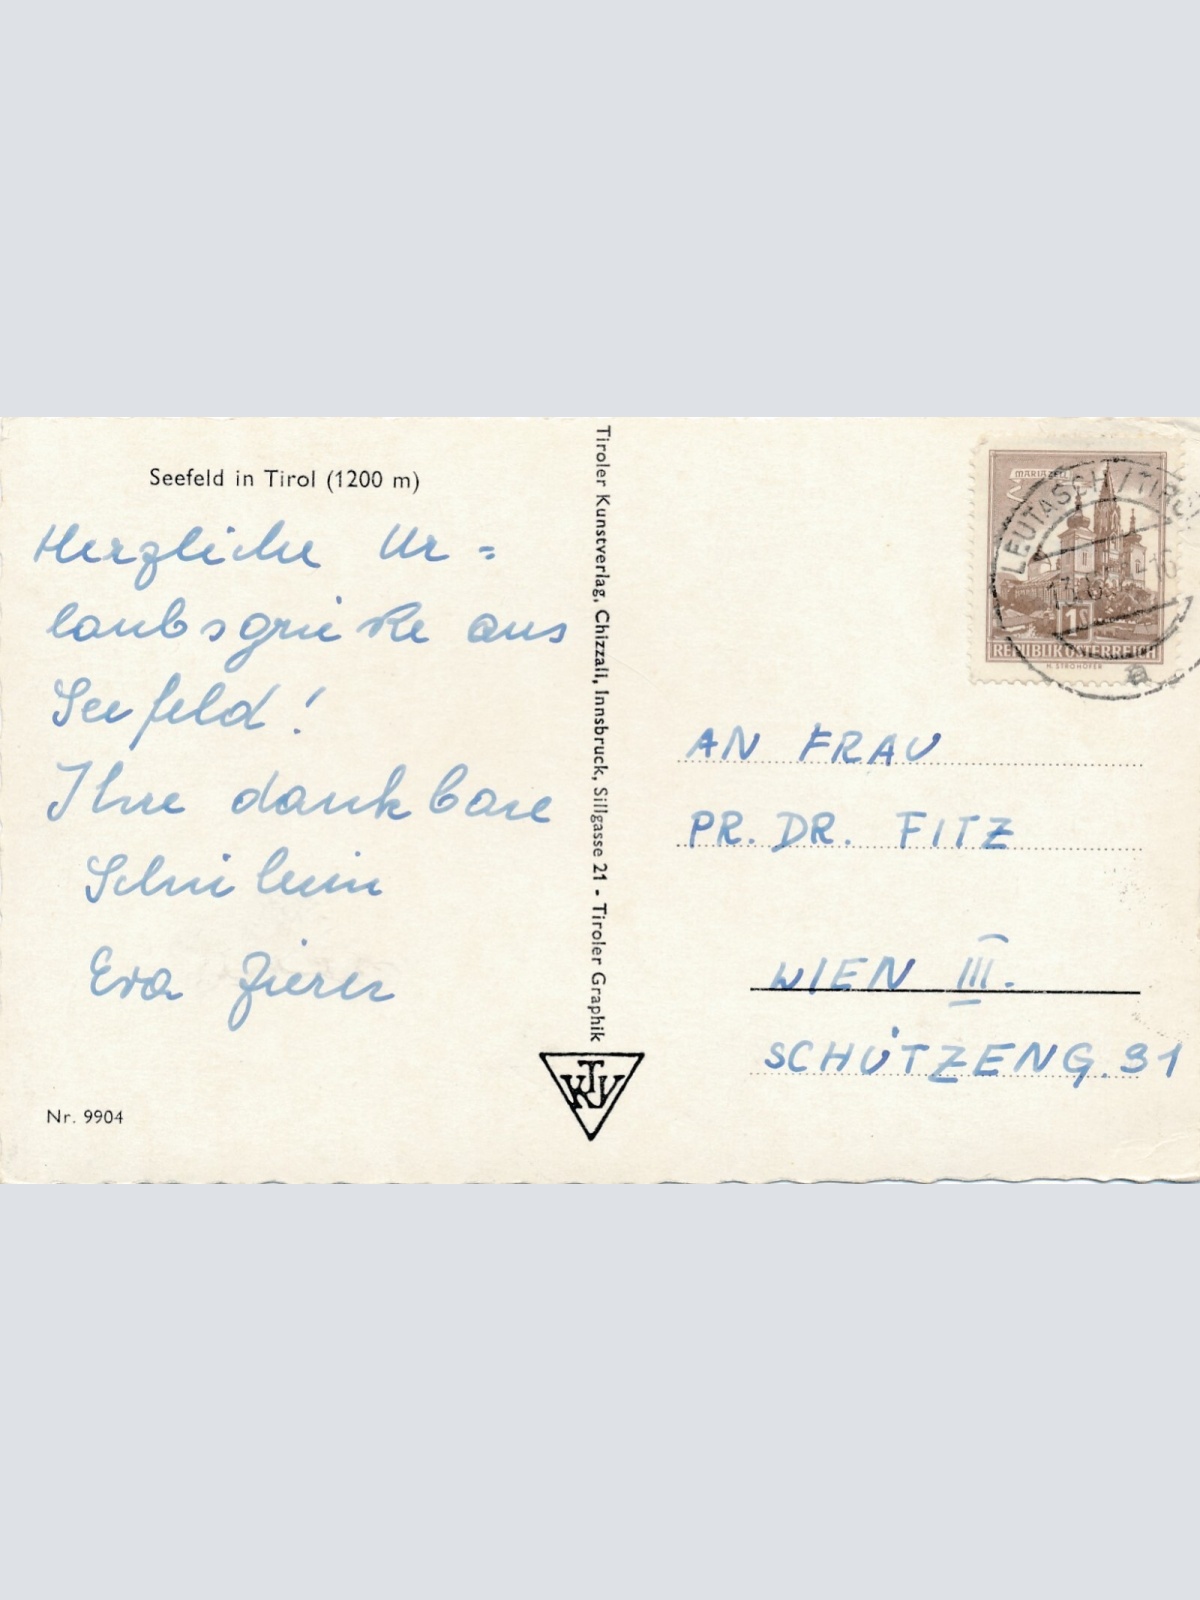 Seefeld in Tirol (1200 m)
Herzliche Ur=
laubsgrüße aus
Seefeld!
Ihre dankbare
Schülerin
Eva
Nr. 9904
Tiroler Kunstverlag, Chizzali, Innsbruck, Sillgasse 21 - Tiroler Graphik
TKV
MARIAZELL
1S
REPUBLIK ÖSTERREICH
H. STROHOFER
LEUTASCH / TIROL
a
AN FRAU
PR. DR. FITZ
WIEN III.
SCHÜTZENG. 31